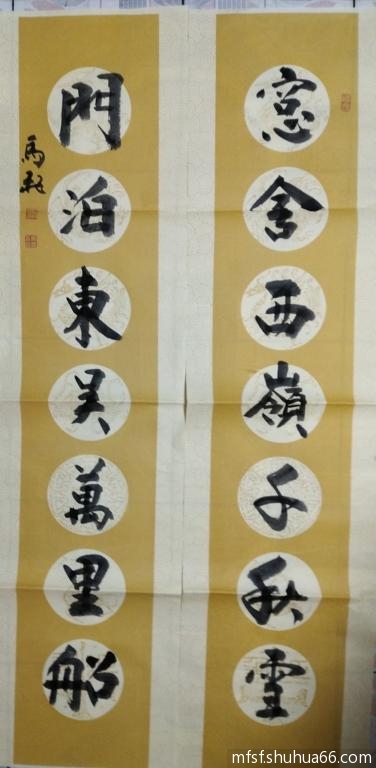 窓含西嶺千秋雪
門泊東吴萬里船
mfsf.shuhua66.com